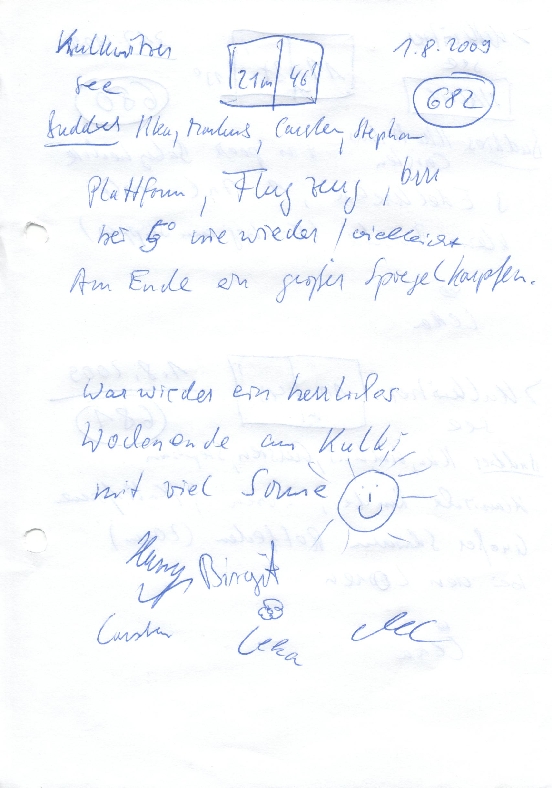 Kulkwitzer 21m 46' 1.8.2009
see 682
Buddies Ilka, Markus, Carsten, Stephan
Plattform, Flugzeug, bin
bei 5° nie wieder / vielleicht
Am Ende ein großer Spiegelkarpfen.
War wieder ein herrliches
Wochenende am Kulki
mit viel Sonne
Birgit
Carsten